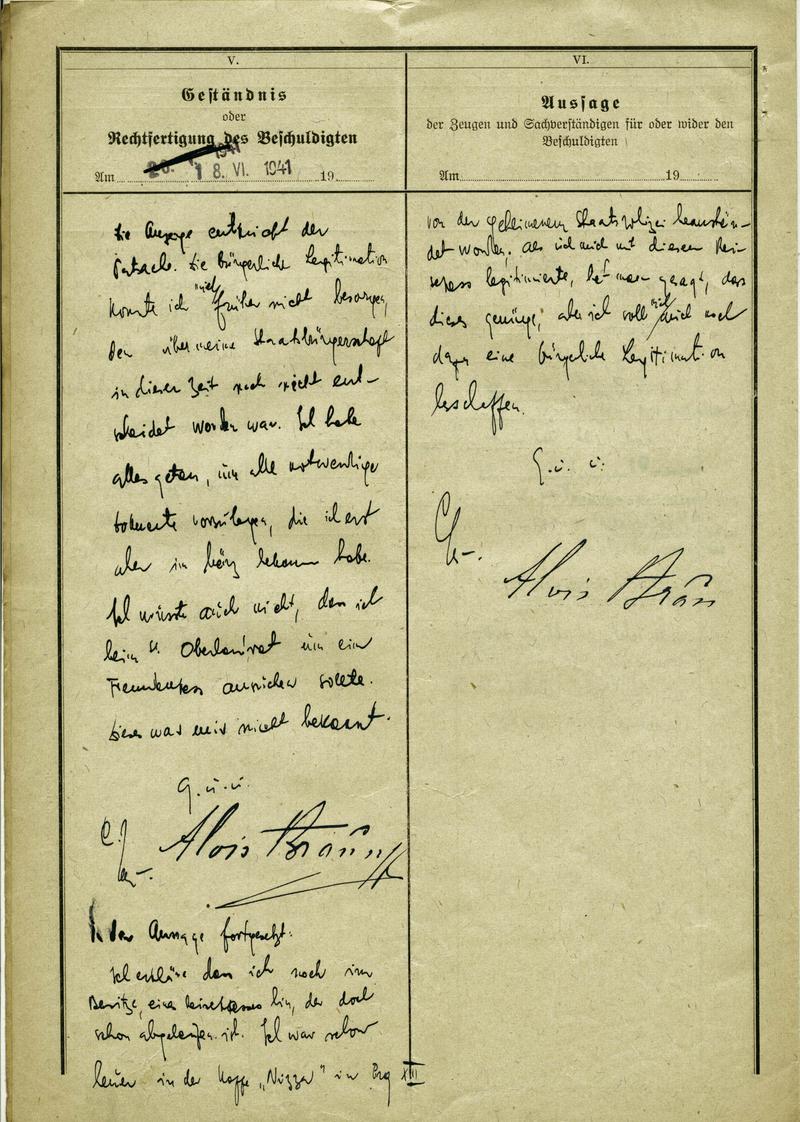 V.
Geständnis
oder
Rechtfertigung des Beschuldigten
1941
Am 18. VI. 1941 19
die Anzeige entspricht der
Tatsache. Die bürgerliche Legitimation
konnte ich mich früher nicht besorgen,
den über meine Staatsbürgerschaft
in dieser Zeit noch nicht ent-
scheidet worden war. Ich habe
alles getan, um alle notwendige
Dokumente vorzulegen, die ich erst
aber im März bekomm habe.
Ich wusste auch nicht, dass ich
beim Oberlandrat um ein
Fremdenpass ansuchen sollte.
Dieses war mir nicht bekannt.
G. u. u.
Alois Braun
In der Aussage fortgesetzt:
Ich erkläre dass ich noch im
Besitze, eines Reisepasses bin, der doch
schon abgelaufen ist. Ich war schon
heuer in der Kaffe „Nizza" in Prag XII
VI.
Aussage
der Zeugen und Sachverständigen für oder wider den
Beschuldigten
Am 19
von der geheimenen Staatspolizei beanstän-
det worden. Als ich mich mit diesem Rei-
sepass legitimierte, hat man gesagt, dass
dieses genüge, aber ich soll mich noch
dazu eine bürgerliche Legitimation
beschaffen.
G. u. u.
Alois Braun